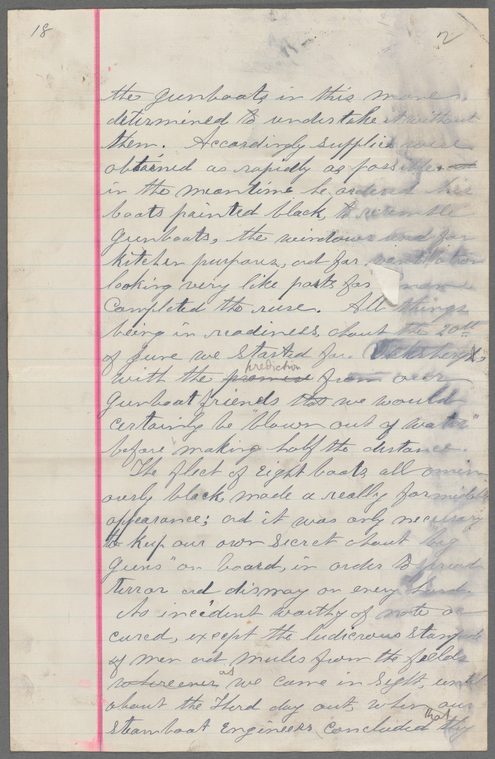 18
2
the gunboats in this
determined to undertake it without
them. Accordingly supplies were
obtained as rapidly as possible.
in the meantime he ordered his
boats painted black, to resemble
Gunboats, the windows used for
kitchen purposes, ad for ventilation
looking very like ports for
completed the ruse. All things
being in readiness about the 20th
of June we started for Vicksburg
prediction
with the promise from our
Gunboat friends that we would
certainly be "blown out of water"
before making half the distance.
The fleet of eight boats all omin
ously black, made a really formidable
appearance; ad it was only necessary
to keep our own secret about "big
guns" on board, in order to spread
terror ad dismay on every hand.
No incident worthy of note oc
cured, except the ludicrous stampede
of men ad mules from the fields
as
whereever we came in sight, until
about the Third day out, when our
that
steamboat Engineers concluded they